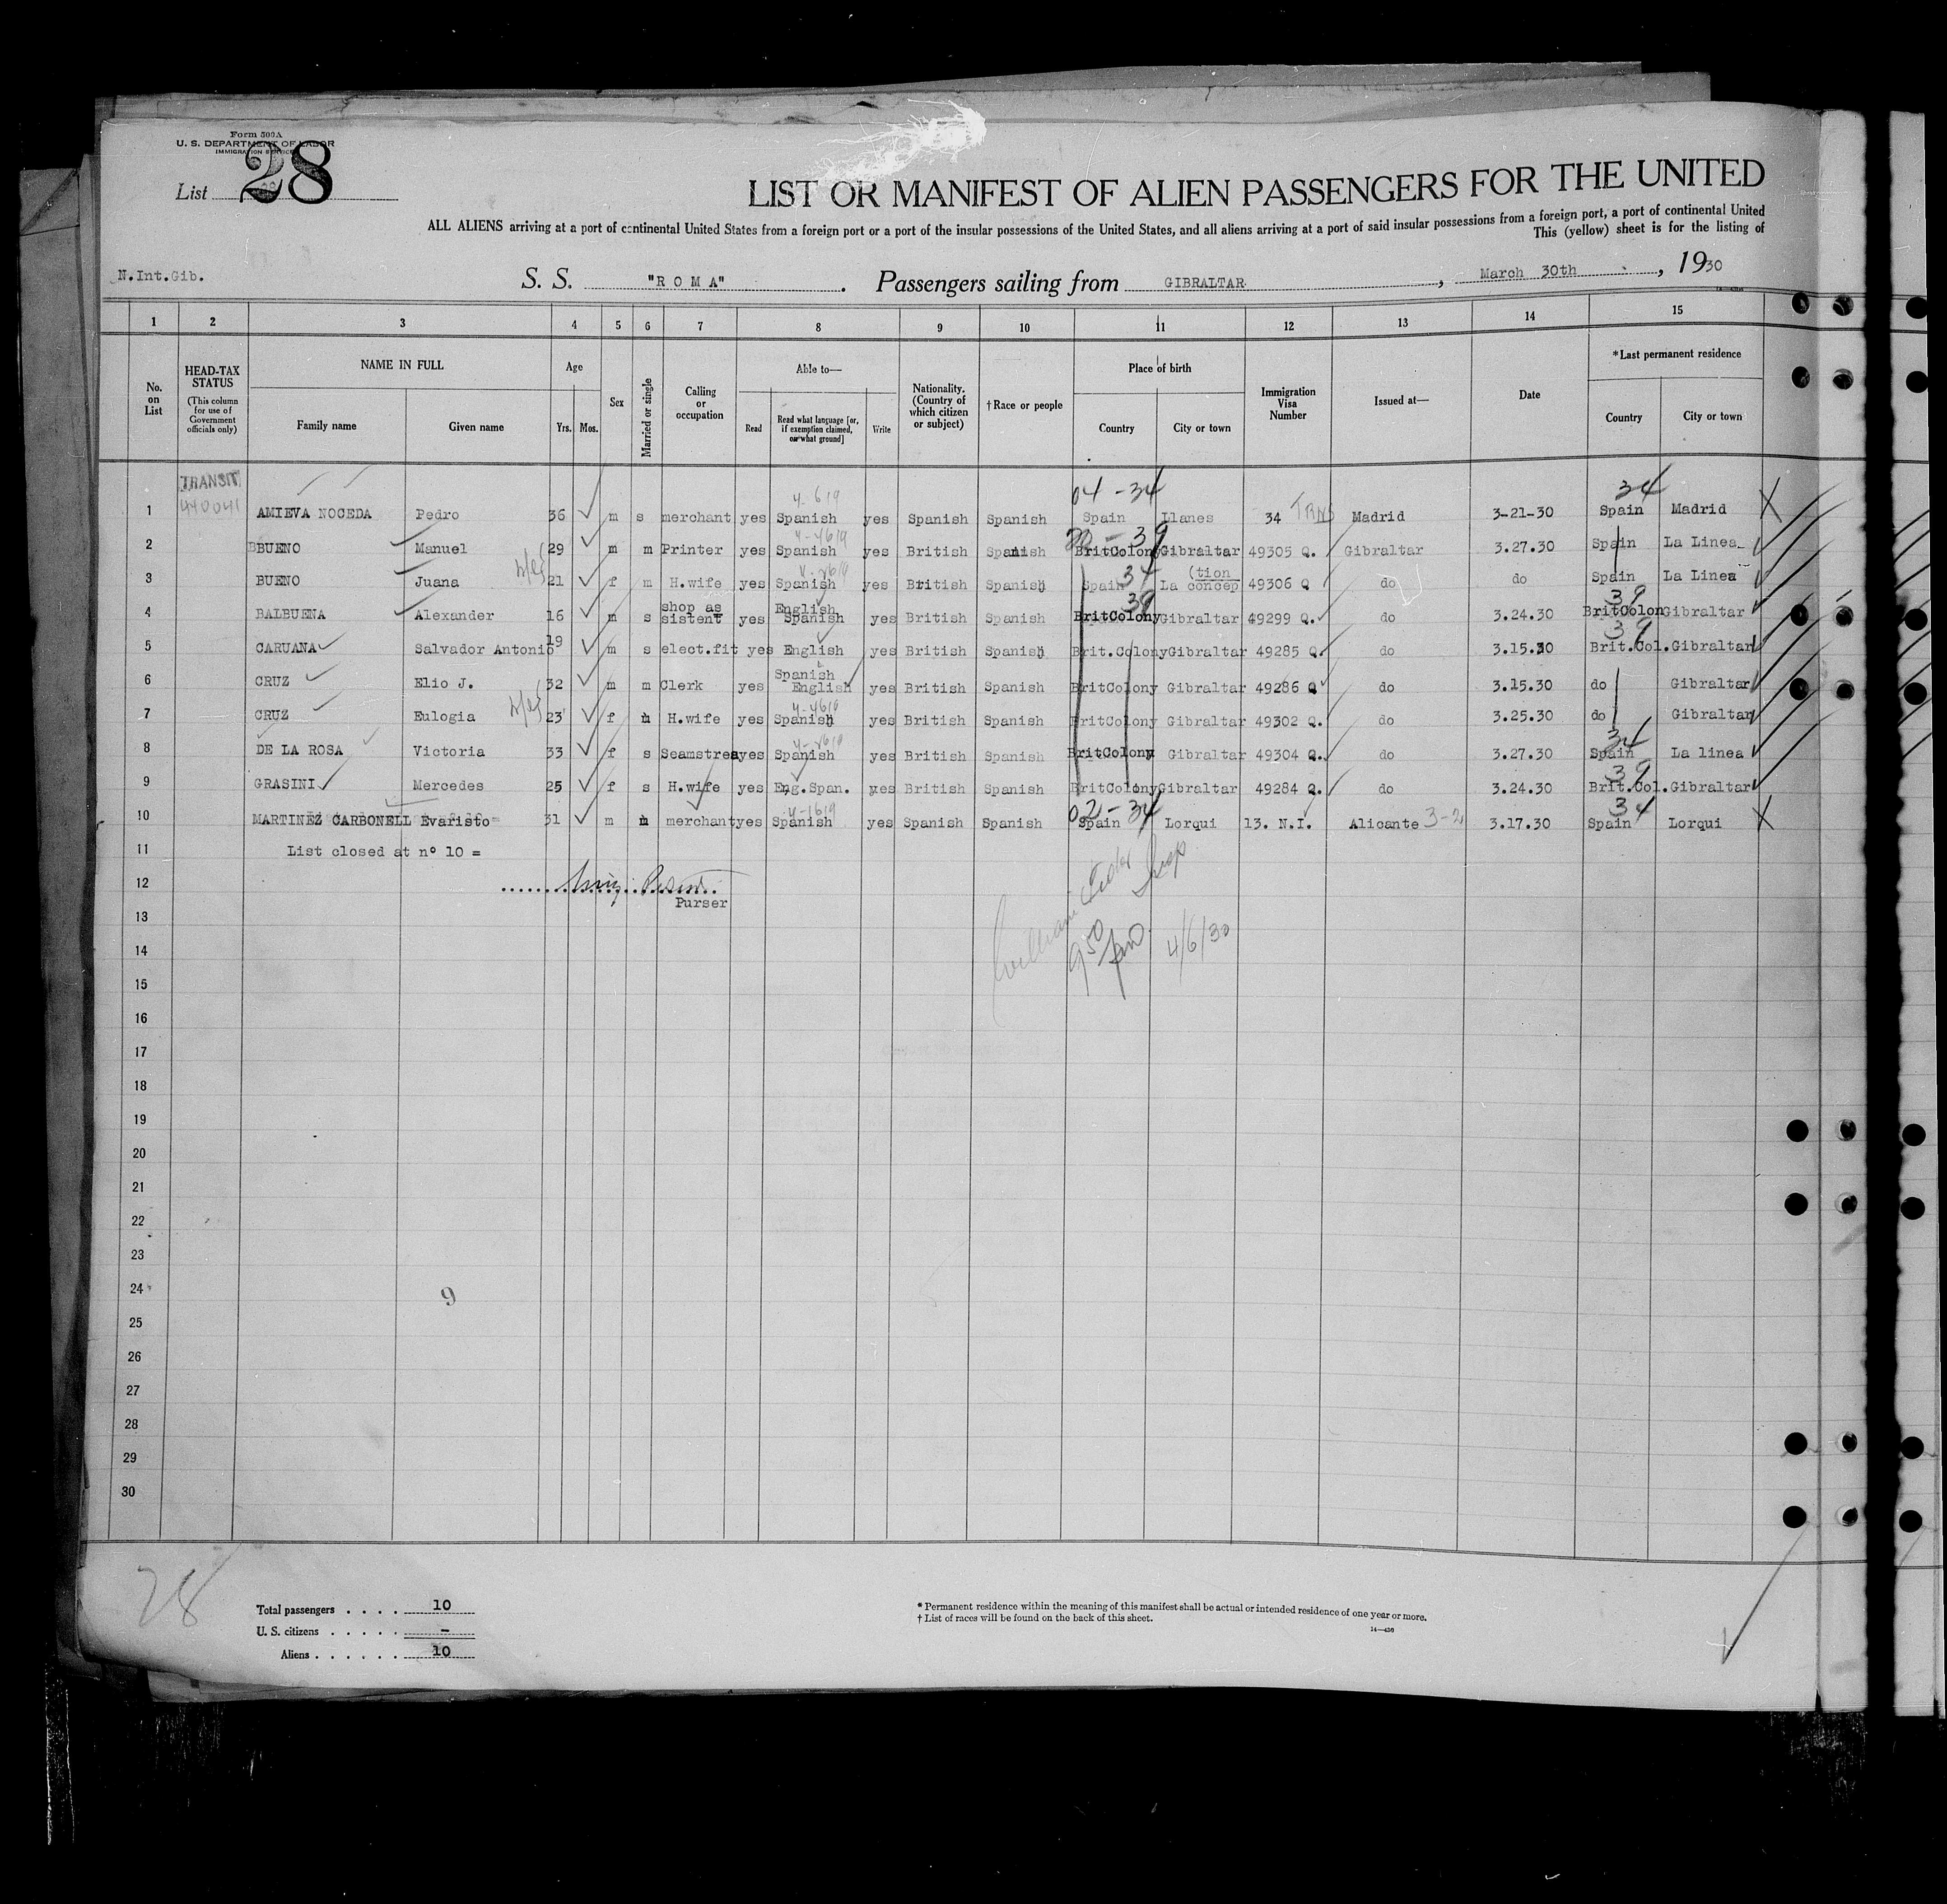 Form 500A
U. S. DEPARTMENT OF LABOR
IMMIGRATION SERVICE
List 28
LIST OR MANIFEST OF ALIEN PASSENGERS FOR THE UNITED
ALL ALIENS arriving at a port of continental United States from a foreign port or a port of the insular possessions of the United States, and all aliens arriving at a port of said insular possessions from a foreign port, a port of continental United
This (yellow) sheet is for the listing of
N.Int.Gib. S. S. "R O M A" . Passengers sailing from GIBRALTAR , March 30th , 1930
1 2 3 4 5 6 7 8 9 10 11 12 13 14 15
No. on List
HEAD-TAX STATUS (This column for use of Government officials only)
NAME IN FULL Family name Given name
Age Yrs. Mos.
Sex
Married or single
Calling or occupation
Able to— Read Read what language [or, if exemption claimed, on what ground] Write
Nationality. (Country of which citizen or subject)
†Race or people
Place of birth Country City or town
Immigration Visa Number
Issued at—
Date
*Last permanent residence Country City or town
TRANSIT 04 - 34 34
4-619
1 440041 AMIEVA NOCEDA Pedro 36 m s merchant yes Spanish yes Spanish Spanish Spain Llanes 34 TRNS Madrid 3-21-30 Spain Madrid X
2 BUENO Manuel 29 m m Printer yes Spanish yes British Spanish BritColony Gibraltar 49305 Q. Gibraltar 3.27.30 Spain La Linea
3 BUENO Juana 21 f m H.wife yes Spanish yes British Spanish Spain 34 La concep (tion 49306 Q do do Spain La Linea
4 BALBUENA Alexander 16 m s shop as sistent yes English Spanish yes British Spanish BritColony 39 Gibraltar 49299 Q. do 3.24.30 BritColon 39 Gibraltar
5 CARUANA Salvador Antonio 19 m s elect.fit yes English yes British Spanish Brit.Colony Gibraltar 49285 Q. do 3.15.30 Brit.Col. 39 Gibraltar
6 CRUZ Elio J. 32 m m Clerk yes Spanish English yes British Spanish BritColony Gibraltar 49286 Q do 3.15.30 do Gibraltar
7 CRUZ Eulogia 23 f m H.wife yes Spanish yes British Spanish BritColony Gibraltar 49302 Q. do 3.25.30 do Gibraltar
8 DE LA ROSA Victoria 33 f s Seamstres yes Spanish yes British Spanish BritColony Gibraltar 49304 Q. do 3.27.30 Spain 34 La linea
9 GRASINI Mercedes 25 f s H.wife yes Eng.Span. yes British Spanish BritColony Gibraltar 49284 Q. do 3.24.30 Brit.Col. 39 Gibraltar
10 MARTINEZ CARBONELL Evaristo 31 m m merchant yes Spanish yes Spanish Spanish 02 - 34 Spain Lorqui 13. N.I. Alicante 3-2 3.17.30 Spain 34 Lorqui X
11 List closed at nº 10 =
12
Purser
13
14 950 pm 4/6/30
15
16
17
18
19
20
21
22
23
24 9
25
26
27
28
29
30
28
Total passengers . . . . 10
U. S. citizens . . . . . -
Aliens . . . . . . 10
* Permanent residence within the meaning of this manifest shall be actual or intended residence of one year or more.
† List of races will be found on the back of this sheet.
14—456